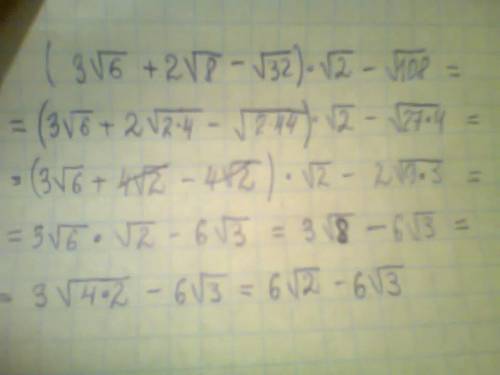 ( 3√6 + 2√8 - √32) · √2 - √108 =
= (3√6 + 2√2·4 - √2·44) · √2 - √27·4 =
= (3√6 + 4√2 - 4√2) · √2 - 2√9·3 =
= 3√6 · √2 - 6√3 = 3√8 - 6√3 =
= 3√4·2 - 6√3 = 6√2 - 6√3